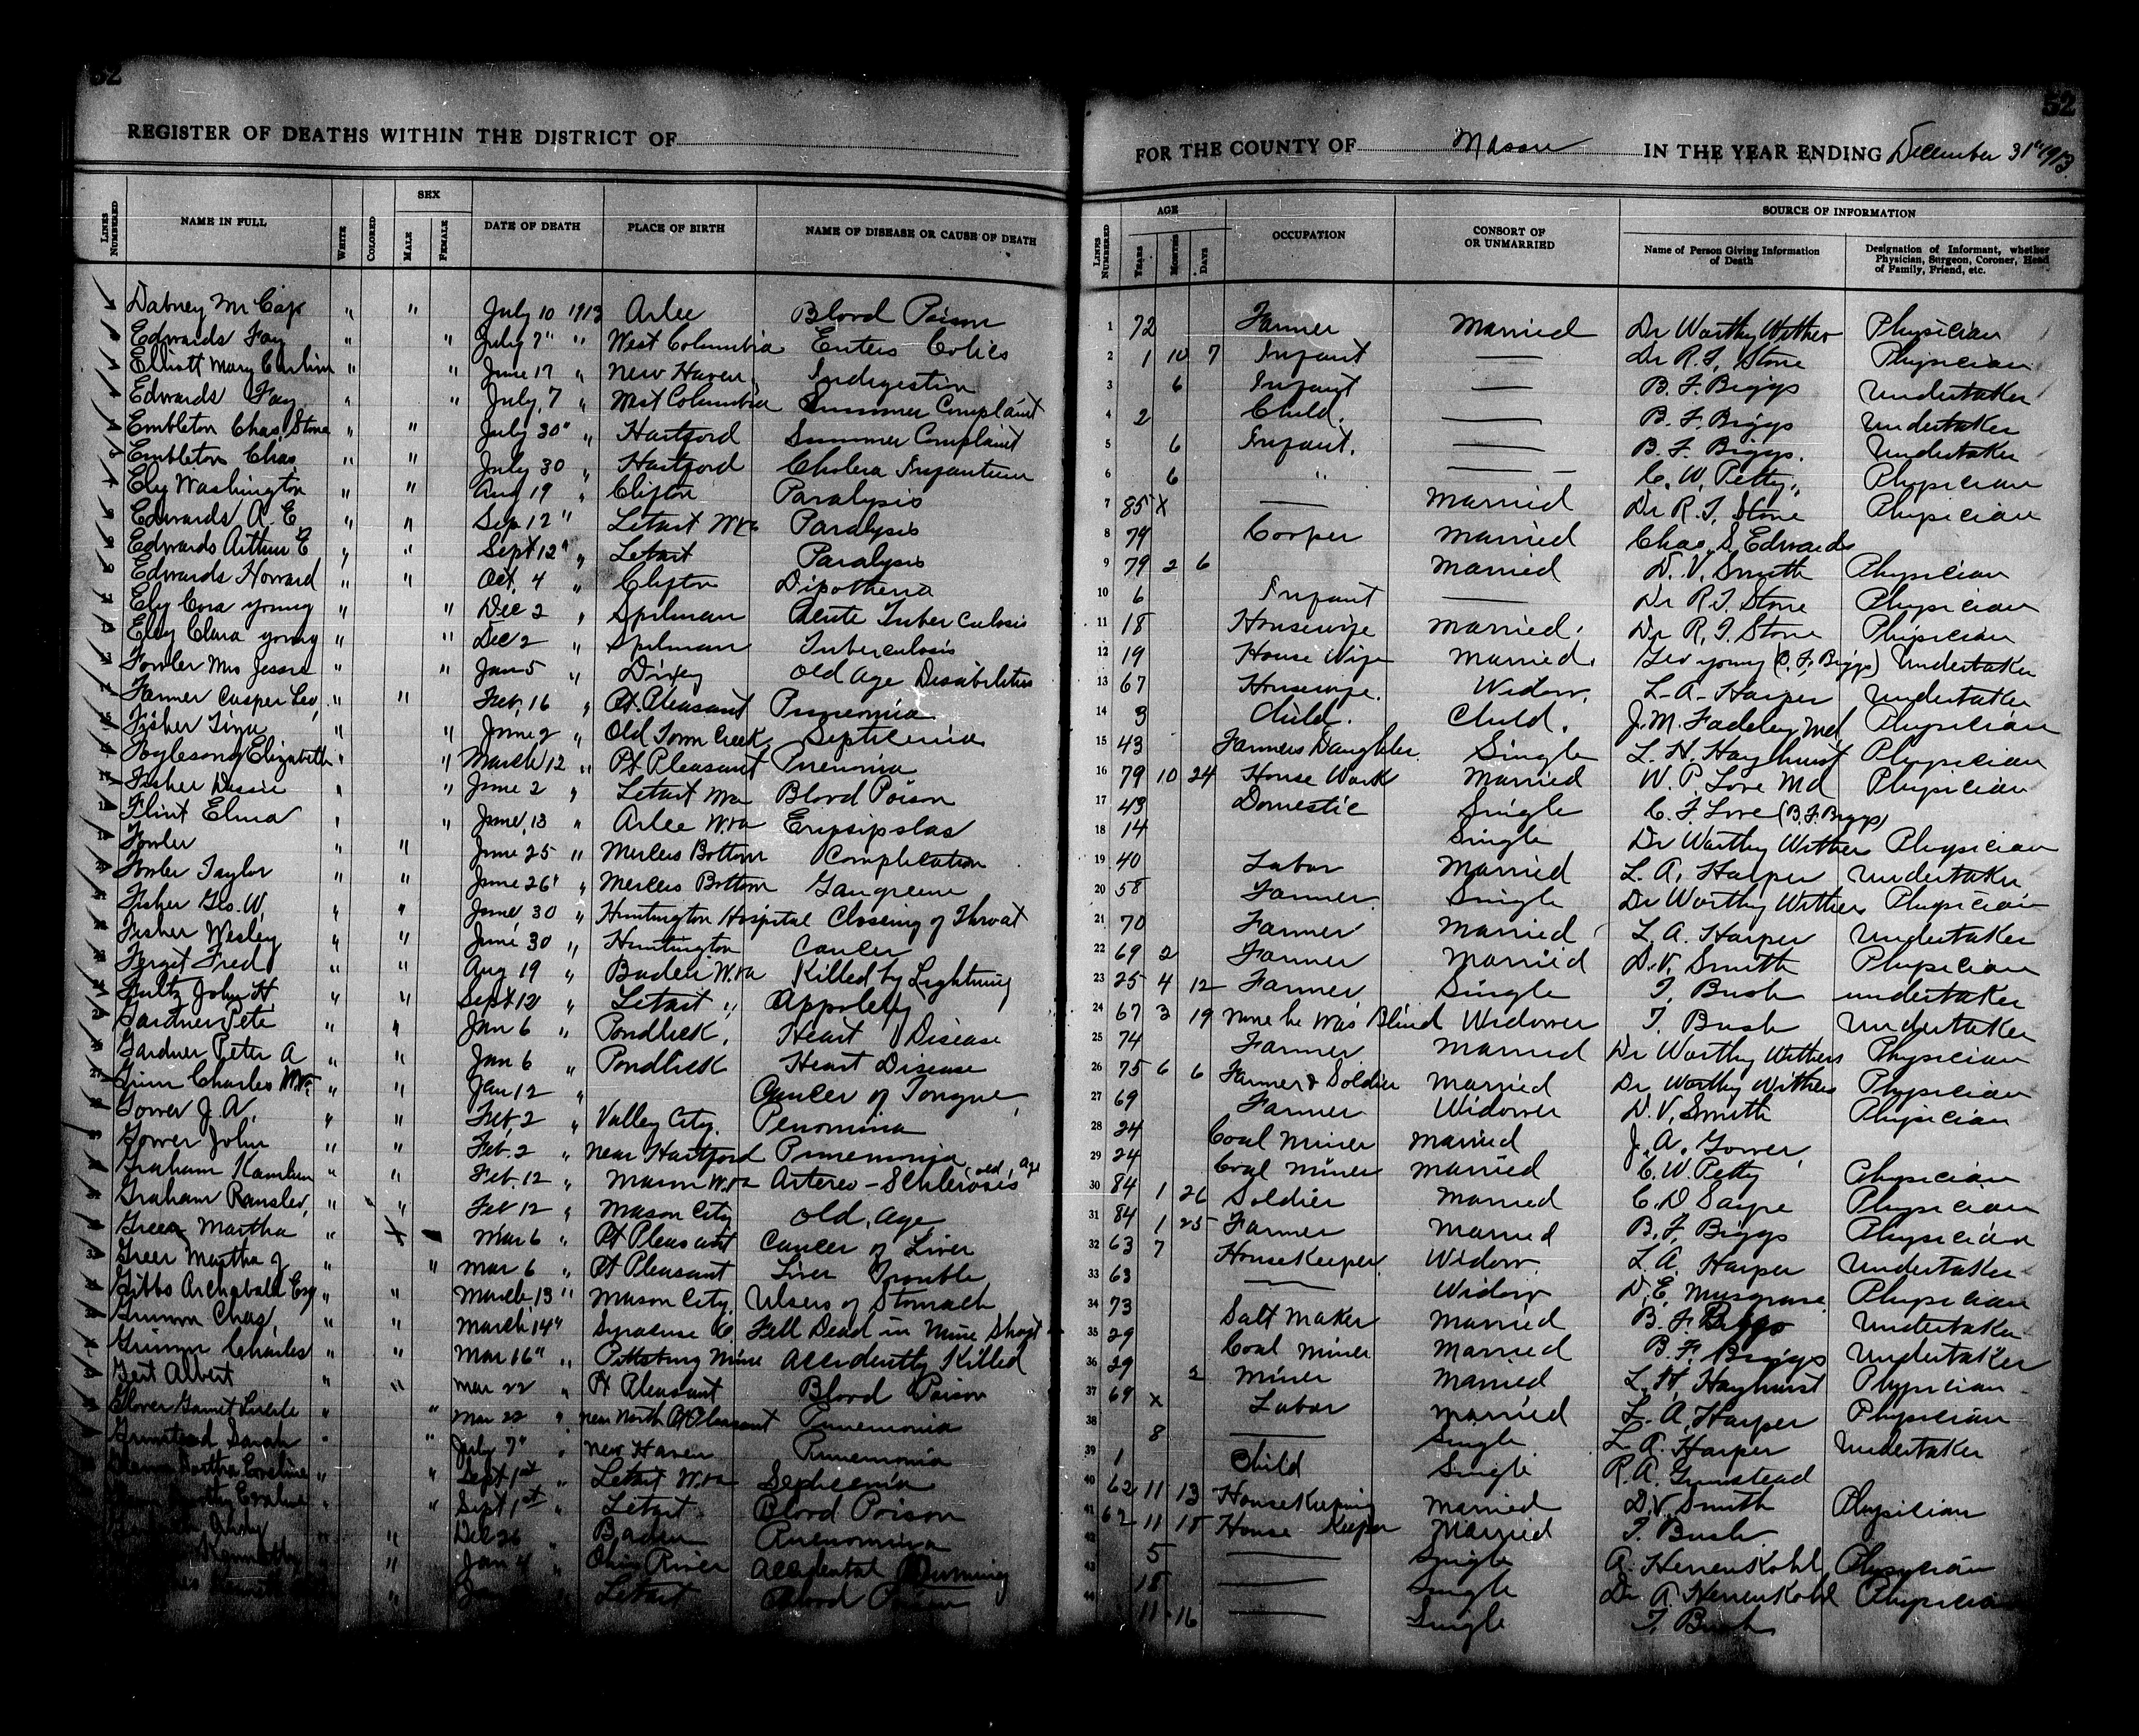 52
REGISTER OF DEATHS WITHIN THE DISTRICT OF
LINES NUMBERED NAME IN FULL WHITE COLORED SEX MALE FEMALE DATE OF DEATH PLACE OF BIRTH NAME OF DISEASE OR CAUSE OF DEATH
Dabney M Cap " " July 10 1913 Arlee Blood Poison
Edwards Fay " " July 7" " West Columbia Entero Colics
Elliott Mary " " June 17 " New Haven Indigestion
Edwards Fay " " July 7 " West Columbia Summer Complaint
Embleton Chas. Stone " " July 30" " Hartford Summer Complaint
Embleton Chas " " July 30 " Hartford Cholera Infantum
Ely Washington " " Aug 19 " Clifton Paralysis
Edwards A. E. " " Sep 12 " Letart W.Va Paralysis
Edwards Arthur E " " Sept 12" " Letart Paralysis
Edwards Howard " " Oct. 4 " Clifton Dipotheria
Ely Cora young " " Dec 2 " Spilman Acute Tuberculosis
Eley Clara young " " Dec 2 " Spilman Tuberculosis
Fowler Mrs Jessie " " Jan 5 " Dixey Old Age Disabilities
Farmer Casper Leo " " Feb. 16 " Pt. Pleasant Pneumonia
Fisher " " June 2 " Old Town Creek Septicemia
Foglesong Elizabeth " " March 12 " Pt Pleasant Pneumonia
Fisher Dessie " " June 2 " Letart W.Va Blood Poison
Flint Elma " " June 13 " Arlee W.Va Eripsipslas
Fowler " " June 25 " Mercers Bottom Complication
Fowler Taylor " " June 26" " Mercers Bottom Gangreene
Fisher Geo. W. " " June 30 " Huntington Hospital Closeing of Throat
Fisher Wesley " " June 30 " Huntington Cancer
Fergit Fred " " Aug 19 " Baden W.Va Killed by Lightning
Fultz John H " " Sept 12 " Letart " Appolexy
Gardner Pete " " Jan 6 " Pondlick, Heart Disease
Gardner Peter A " " Jan 6 " Pondlick Heart Disease
Charles " " Jan 12 " Cancer of Tongue
Gower J. A. " " Feb. 2 " Valley City. Penomina
Gower John " " Feb. 2 " near Hartford Pnnemonia
Graham " " Feb. 12 " Mason W.Va Artereo-Schlerosis old age
Graham Ransler, " " Feb 12 " Mason City Old Age
Green Martha " Mar 6 " Pt Pleasant Cancer of Liver
Greer Martha J " " Mar 6 " Pt Pleasant Liver Trouble
Gibbs Archabald Esq " " March 13" " Mason City. Ulsers of Stomach
Grimm Chas. " " March 14" Syracuse Fell Dead in Mine Shaft
Grimm Charles " " Mar 16" " Pittsburg Mine Accidently Killed
Albert " " Mar 22 " Pt Pleasant Blood Poison
Glover Garnet " " Mar 22 " near North Pt Pleasant Pnnemonia
Grimstead Sarah " " July 7" " New Haven Pnnemonia
" " Sept 1st " Letart W.Va Septicemia
" " Sept 1st " Letart Blood Poison
" " Dec 26 " Baden Pnenomina
" " Jan 4 " Ohio River Accidental Drowning
" Letart Blood Poison
52
FOR THE COUNTY OF Mason IN THE YEAR ENDING December 31" 1913
LINES NUMBERED AGE YEARS MONTHS DAYS OCCUPATION CONSORT OF OR UNMARRIED SOURCE OF INFORMATION Name of Person Giving Information of Death Designation of Informant, whether Physician, Surgeon, Coroner, Head of Family, Friend, etc.
1 72 Farmer Married Dr Worthy Withers Physician
2 1 10 7 Infant — Dr R. T. Stone Physician
3 6 Infant — B. F. Biggs Undertaker
4 2 Child. — B. F. Biggs Undertaker
5 6 Infant. — B. F. Biggs. Undertaker
6 6 " — C. W. Petty Physician
7 85 x — Married Dr R. T. Stone Physician
8 79 Cooper Married Chas. S. Edwards
9 79 2 6 Married D. V. Smith Physician
10 6 Infant — Dr R. T. Stone Physician
11 18 Housewife Married. Dr R. T. Stone Physician
12 19 House Wife Married. Geo young (B. F. Biggs) Undertaker
13 67 Housewife. Widow. L. A. Harper Undertaker
14 3 Child. Child. J. M. Fadeley Md Physician
15 43 Farmers Daughter Single L. H. Hayhurst Physician
16 79 10 24 House Work Married W. P. Love Md Physician
17 43 Domestic Single C. F. Love (B. F. Biggs)
18 14 Single Dr Worthy Withers Physician
19 40 Labor Married L. A. Harper Undertaker
20 58 Farmer Single Dr Worthy Withers Physician
21 70 Farmer Married L. A. Harper Undertaker
22 69 2 Farmer Married D. V. Smith Physician
23 25 4 12 Farmer Single T. Bush undertaker
24 67 3 19 None he was Blind Widower T. Bush Undertaker
25 74 Farmer Married Dr Worthy Withers Physician
26 75 6 6 Farmer & Soldier Married Dr. Worthy Withers Physician
27 69 Farmer Widower D. V. Smith Physician
28 24 Coal Miner Married J. A. Gower
29 24 Coal Miner Married C. W. Petty Physician
30 84 1 26 Soldier Married C. D. Sayre Physician
31 84 1 25 Farmer Married B. F. Biggs Physician
32 63 7 HouseKeeper Widow L. A. Harper Undertaker
33 63 — Widow D. E. Musgrave Physician
34 73 Salt Maker Married B. F. Biggs Undertaker
35 29 Coal Miner Married B. F. Biggs Undertaker
36 29 2 Miner Married L. H. Hayhurst Physician
37 69 x Labor Married L. A. Harper Physician
38 8 — Single L. A. Harper Undertaker
39 1 Child Single R. A. Grimstead
40 62 11 13 HouseKeeping Married D. V. Smith Physician
41 62 11 18 House Keeper Married T. Bush
42 5 — Single A. HerrenKohl Physician
43 18 — Single Dr A. HerrenKohl Physician
44 11 16 — Single T. Bush